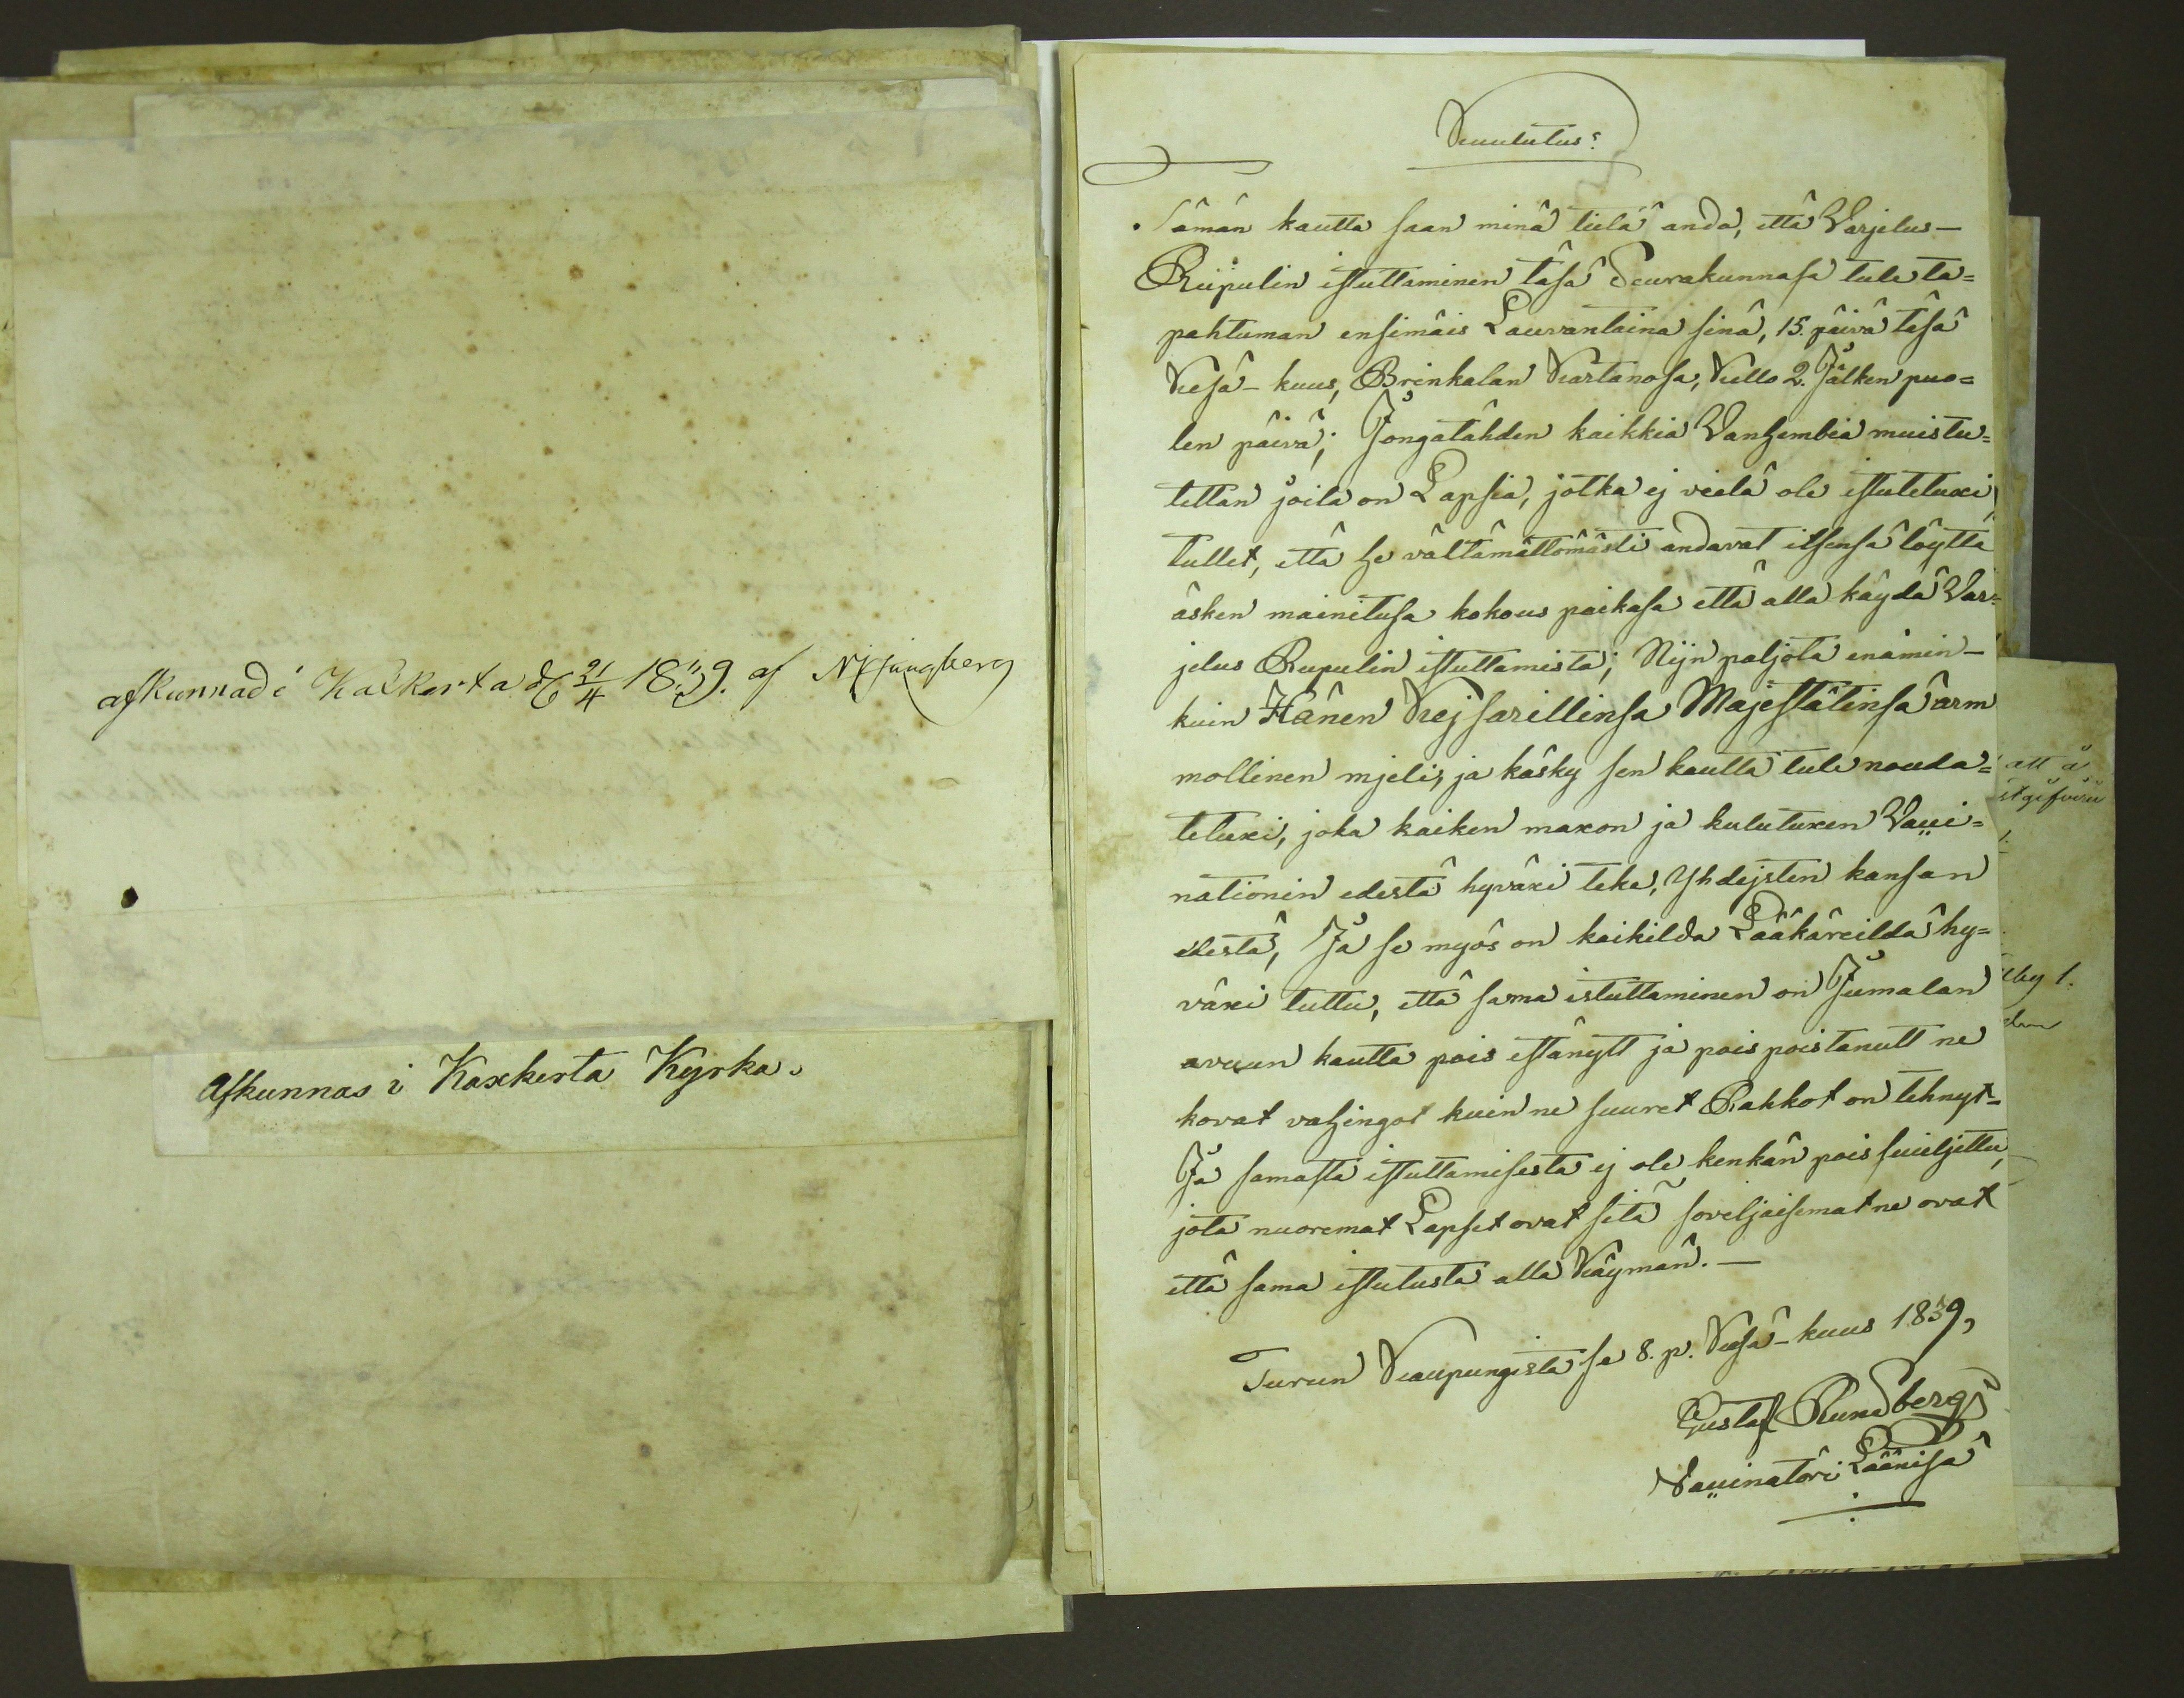 afkunnad i Kakskerta d. 21/4 1839. af N Ljungberg
Afkunnas i Kaxkerta Kyrka.
Kuulutus:
Tämän kautta saan minä tiilä anda, että Varjelus-
Riipulin istuttaminen täsä Seurakunnasa tule ta=
pahtuman ensimäis Lauvantaina sinä, 15. päivä täsä
Kesä-kuus, Brinkalan Kartanosa, Kello 2. Jälken puo=
len päivä; Jongatähden kaikkia Vanhembia muistu=
tettan joila on Lapsia, jotka ej vielä ole istutetuxi
tullet, että he vältämättömästi andavat itsensä löyttä
äsken mainitusa kokous paikasa että alla käydä Var=
jelus Rupulin istuttamista; Nijn paljota enämin-
kuin Hänen Kejsarillinsa Majestätinsä arm
mollinen mjelis, ja käsky sen kautta tule nouda=
tetuxi, joka kaiken maxon ja kulutuxen Vaxi=
nationin edestä hyväxi teke, Yhdejsten kansan
edestä, Ja se myös on kaikilda Lääkäreildä hy=
växi tuttu, että sama istuttaminen on Jumalan
avuun kautta pois estänytt ja pois poistanutt ne
kovat vahingot kuin ne suuret Rakkot on tehnyt-
Ja samasta istuttamisesta ej ole kenkän pois suieljettu,
jota nuoremat Lapset ovat sitä soveljaisemat ne ovat
että sama istutusta alla Käymän.-
Turun Kaupungista se 8. p. Kesä-kuus 1839,
Gustaf Rundberg
Vaxinatöri Läänisä
att å
elby 1.